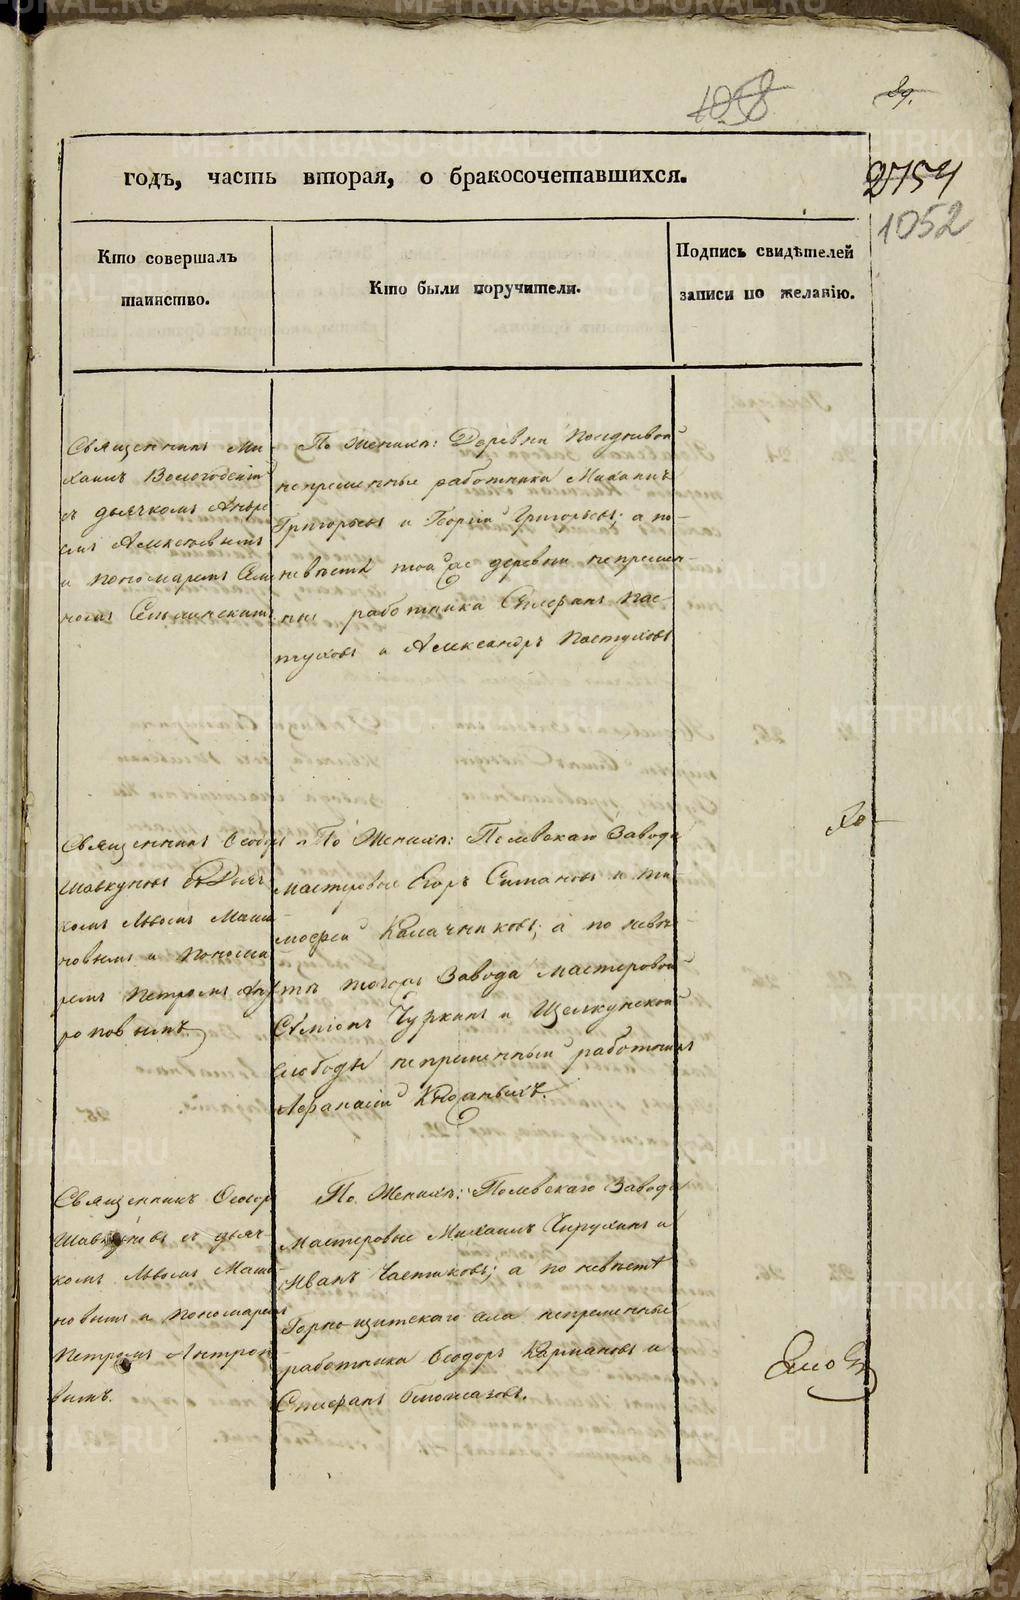 1058
89.
годъ, часть вторая, о бракосочетавшихся.
2154
1052
Кто совершалъ
таинство.
Кто были поручители.
Подпись свидѣтелей
записи по желанію.
Священникъ Ми-
хаилъ Вологодскій
съ дьячкомъ Андре
емъ Алексѣевымъ
и пономаремъ Сем
По Женихѣ: Деревни
непремѣнные работники Михаилъ
Григорьевъ и Георгій Григорьевъ; а по
невѣстѣ той же деревни непремѣн-
ные работника Стефанъ Пас-
туховъ и Александръ Пастуховъ
Священникъ Ѳеодоръ
Шавкуновъ съ Дьяч
комъ Львомъ Маши
новымъ и Понома
ремъ Петромъ Анд
роновымъ.
По Женихѣ: Полевскаго Завода
мастеровые Егоръ Симановъ и Ти-
мофей Калачниковъ; а по невѣ-
стѣ тогожъ Завода мастеровой
Симіонъ Чуркинъ и Щелкунской
слободы непремѣнный работникъ
Афанасій
Священникъ Ѳеодоръ
Шавкуновъ съ дьяч-
комъ Львомъ Маши
новымъ и Пономаремъ
Петромъ
вымъ.
По Женихѣ: Полевскаго Завода
Мастеровые Михаилъ Чирухинъ и
Иванъ Частиковъ; а по невѣстѣ
Горно-щитскаго села непремѣнные
работника Ѳеодоръ Кармановъ и
Стефанъ
METRIKI.GASO-URAL.RU